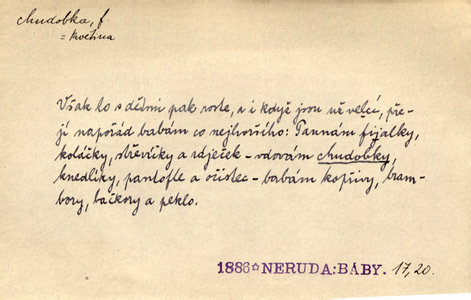 chudobka, f.
= květina
Však to s dětmi pak roste, a i když jsou už velcí, pře-
jí napořád babám co nejhoršího: Pannám fijalky,
koláčky, střevíčky a ráječek - vdovám chudobky,
knedlíky, pantofle a očistec - babám kopřivy, bram-
bory, bačkory a peklo.
1886 NERUDA: BÁBY. 17, 20.